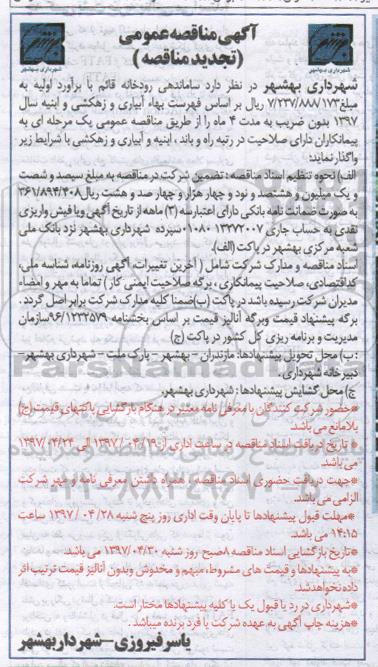 آگهی مناقصه عمومی
(تجدید مناقصه)
شهرداری بهشهر
شهرداری بهشهر
شهرداری بهشهر در نظر دارد ساماندهی رودخانه قائم با برآورد اولیه به
مبلغ ۷/۲۳۷/۸۸۸/۱۷۳ ریال بر اساس فهرست بهاء آبیاری و زهکشی و ابنیه سال
۱۳۹۷ بدون ضریب به مدت ۴ ماه را از طریق مناقصه عمومی یک مرحله ای به
پیمانکاران دارای صلاحیت در رتبه راه و باند ، ابنیه و آبیاری و زهکشی با شرایط زیر
واگذار نمایند:
الف) نحوه تنظیم اسناد مناقصه : تضمین شرکت در مناقصه به مبلغ سیصد و شصت
و یک میلیون و هشتصد و نود و چهار هزار و چهار صد و هشت ریال ۳۶۱/۸۹۴/۴۰۸
به صورت ضمانت نامه بانکی دارای اعتبار سه (۳) ماهه از تاریخ آگهی ویا فیش واریزی
نقدی به حساب جاری ۰۱۰۸۰۱۳۳۷۳۰۰۷ سپرده شهرداری بهشهر نزد بانک ملی
شعبه مرکزی بهشهر در پاکت (الف).
اسناد مناقصه و مدارک شرکت شامل ( آخرین تغییرات، آگهی روزنامه، شناسه ملی،
کد اقتصادی، صلاحیت پیمانکاری ، برگه صلاحیت ایمنی کار ) تماما به مهر و امضاء
مدیران شرکت رسیده باشد در پاکت (ب) ضمنا کلیه مدارک شرکت برابر اصل گردد .
برگه پیشنهاد قیمت وبرگه آنالیز قیمت بر اساس بخشنامه ۹۶/۱۲۳۲۵۷۹ سازمان
مدیریت و برنامه ریزی کل کشور در پاکت (ج)
: ب) محل تحویل پیشنهادها: مازندران - بهشهر - پارک ملت - شهرداری بهشهر -
دبیرخانه شهرداری .
ج) محل گشایش پیشنهادها : شهرداری بهشهر.
*حضور شرکت کنندگان با معرفی نامه معتبر در هنگام بازگشایی پاکتهای قیمت (ج)
بلامانع می باشد.
* تاریخ دریافت اسناد مناقصه در ساعت اداری از ۱۳۹۷/۰۴/۱۹ الی ۱۳۹۷/۰۴/۲۴
می باشد.
*جهت دریافت حضوری اسناد مناقصه ، همراه داشتن معرفی نامه و مهر شرکت
الزامی می باشد.
*مهلت قبول پیشنهادها تا پایان وقت اداری روز پنج شنبه ۱۳۹۷/۰۴/۲۸ ساعت
۱۴:۱۵ می باشد.
*تاریخ بازگشایی اسناد مناقصه ۸ صبح روز شنبه ۱۳۹۷/۰۴/۳۰ می باشد.
*به پیشنهادها و قیمت های مشروط، مبهم و مخدوش وبدون آنالیز قیمت ترتیب اثر
داده نخواهد شد.
*شهرداری در رد یا قبول یک یا کلیه پیشنهادها مختار است.
*هزینه چاپ آگهی به عهده شرکت یا فرد برنده میباشد .
یاسر فیروزی - شهردار بهشهر
ParsNamadData
۰۲۱-۸۸۳۴۹۶۷۰